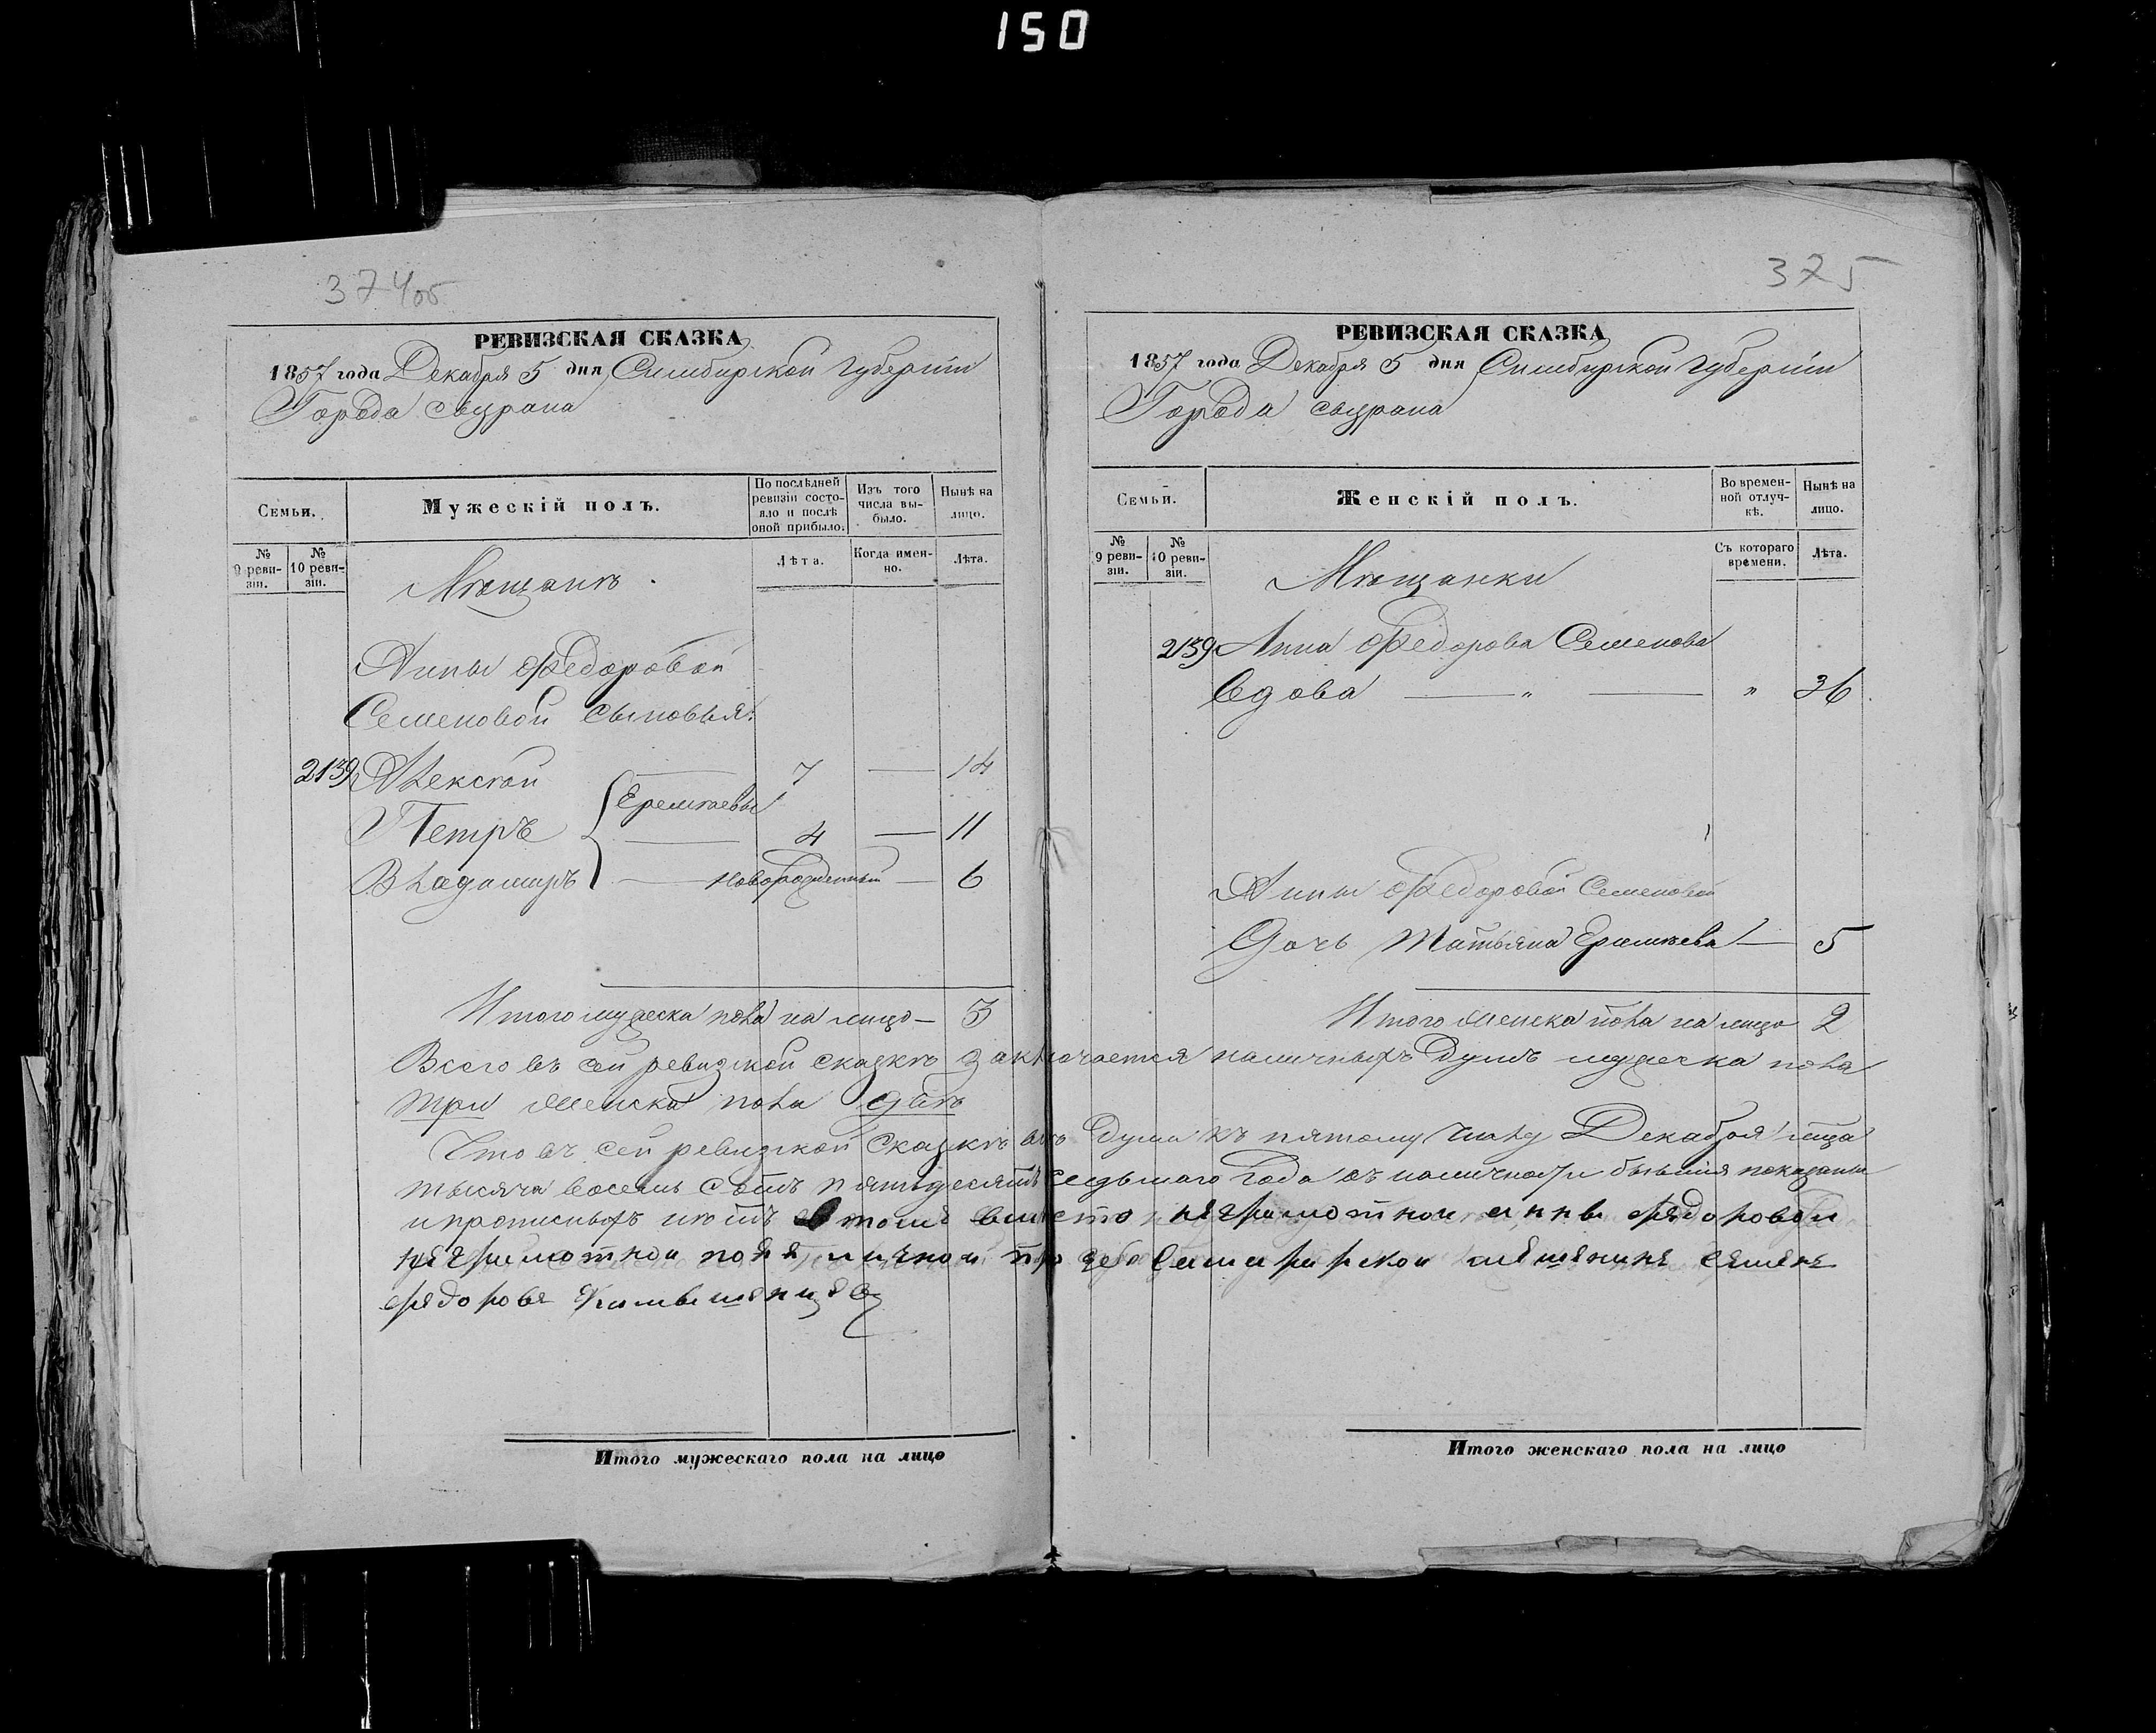 150
374об
РЕВИЗСКАЯ СКАЗКА
1857 года Декабря 5 дня Симбирской губернiи
Города Сызрана
Семьи.
Мужескій полъ.
По послѣдней ревизіи состояло и послѣ оной прибыло.
Изъ того числа выбыло.
Нынѣ на лицо.
№ 9 ревизіи.
№ 10 ревизіи.
Лѣта.
Когда именно.
Лѣта.
Мѣщанѣ
Анны Федоровой
Семеновой сыновья:
2139 Алексѣй 7 — 14
Еремѣевы
Петръ 4 — 11
Владимиръ — новорожденный — 6
Итого мужеска пола на лицо — 3
375
РЕВИЗСКАЯ СКАЗКА
1857 года Декабря 5 дня Симбирской губернiи
Города Сызрана
Семьи.
Женскій полъ.
Во временной отлучкѣ.
Нынѣ на лицо.
№ 9 ревизіи.
№ 10 ревизіи.
Съ котораго времени.
Лѣта.
Мѣщанки
2139 Анна Федорова Семенова
Вдова — „ — „ 36
Анны Федоровой Семеновой
Дочь Татьяна Еремѣева — 5
Итого женска пола на лицо 2
Всего въ сей ревизской сказкѣ заключается наличныхъ душъ мужеска пола
три женска пола двѣ
Что въ сей ревизской сказкѣ всѣ души къ пятому числу Декабря мца
тысяча восемь сотъ пятьдесятъ седьмаго года въ наличности бывшія показаны
и прописныхъ нѣтъ в томъ вместо неграмотной анны федоровой
неграмотной по ея личной прозбе
федорова
Итого мужескаго пола на лицо
Итого женскаго пола на лицо